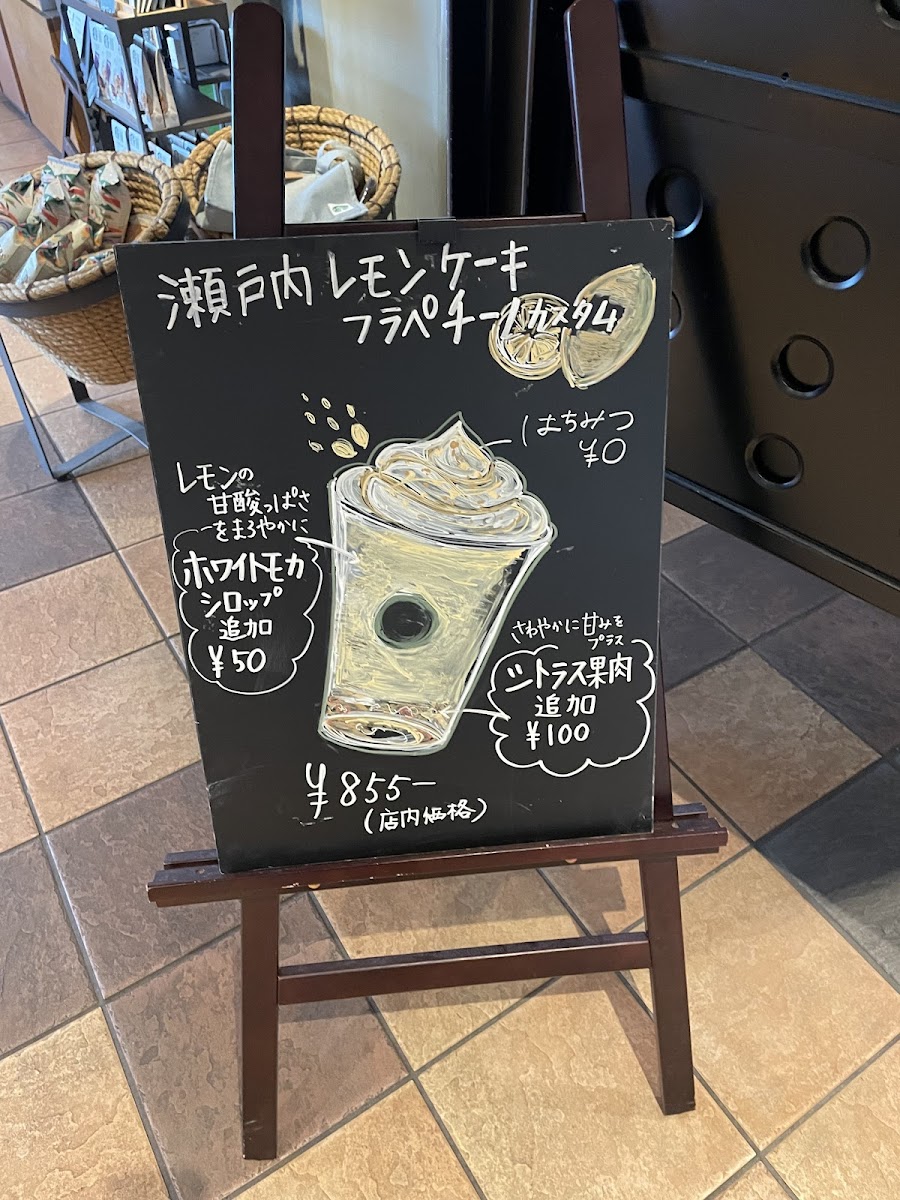 瀬戸内 レモンケーキ
フラペチーノ カスタム
はちみつ
¥0
レモンの
甘酸っぱさ
をまろやかに
ホワイトモカ
シロップ
追加
¥50
さわやかに甘みを
プラス
シトラス果肉
追加
¥100
¥855-
(店内価格)